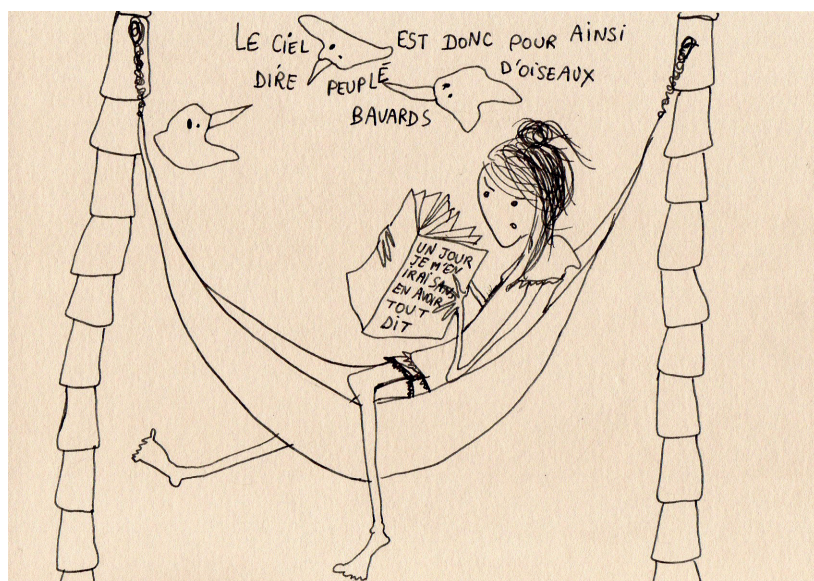 LE CIEL EST DONC POUR AINSI
DIRE PEUPLÉ D'OISEAUX
BAVARDS
UN JOUR
JE M'EN
IRAI SANS
EN AVOIR
TOUT
DIT